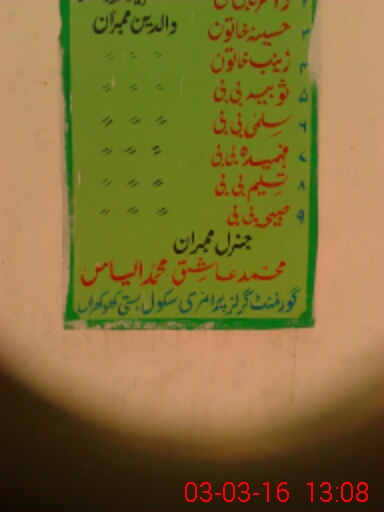 ۳ حسینہ خاتون والدین ممبران
۴ زینب خاتون 〃 〃 〃
۵ ثوبیہ بی بی 〃 〃 〃
۶ سلمیٰ بی بی 〃 〃 〃
۷ فہمیدہ بی بی 〃 〃 〃
۸ تسلیم بی بی 〃 〃 〃
۹ بی بی 〃 〃 〃
جنرل ممبران
محمد عاشق محمد الیاس
گورنمنٹ گرلز پرائمری سکول بستی کھوکھراں
03-03-16 13:08